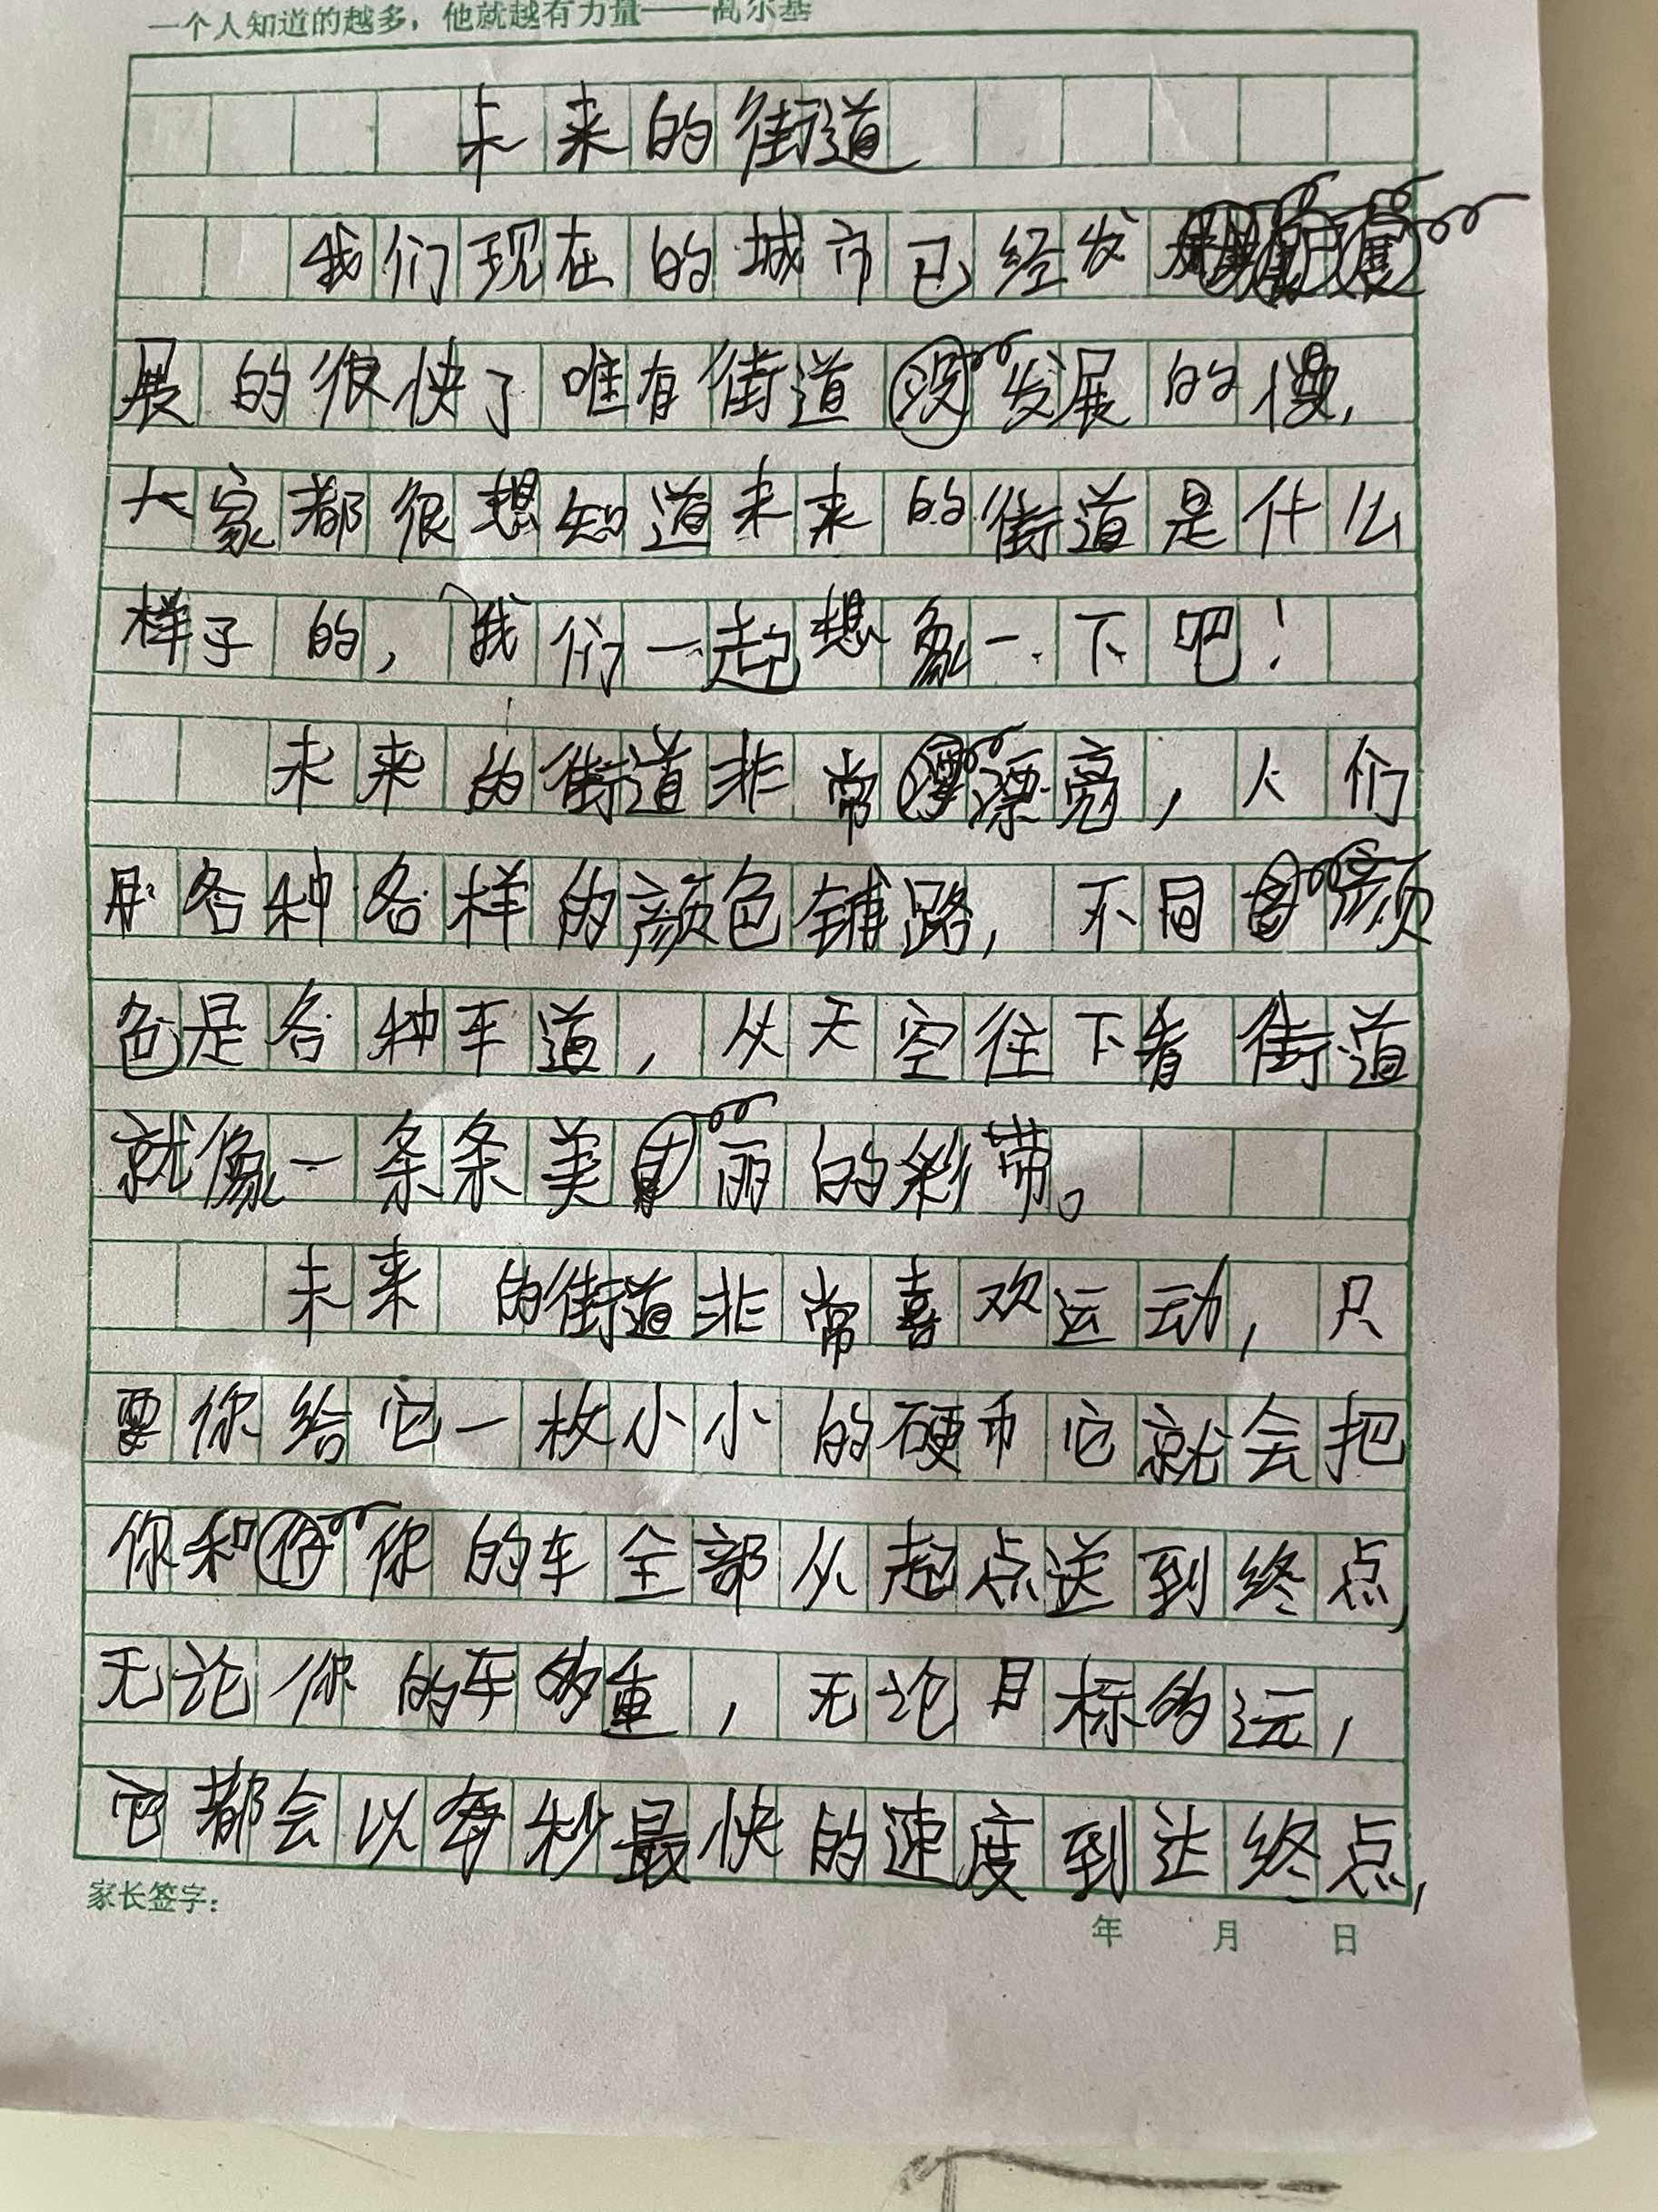 一个人知道的越多，他就越有力量——高尔基
未来的街道
我们现在的城市已经发
展的很快了唯有街道发展的慢，
大家都很想知道未来的街道是什么
样子的，我们一起想象一下吧！
未来的街道非常漂亮，人们
用各种各样的颜色铺路，不同颜
色是各种车道，从天空往下看街道
就像一条条美丽的彩带。
未来的街道非常喜欢运动，只
要你给它一枚小小的硬币它就会把
你和你的车全部从起点送到终点，
无论你的车多重，无论目标多远，
它都会以每秒最快的速度到达终点，
家长签字：
年 月 日